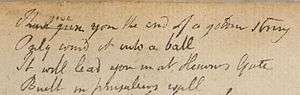 you the end of a golden string
Only wind it into a ball
It will lead you in at Heavens Gate
Built in Jerusalems wall